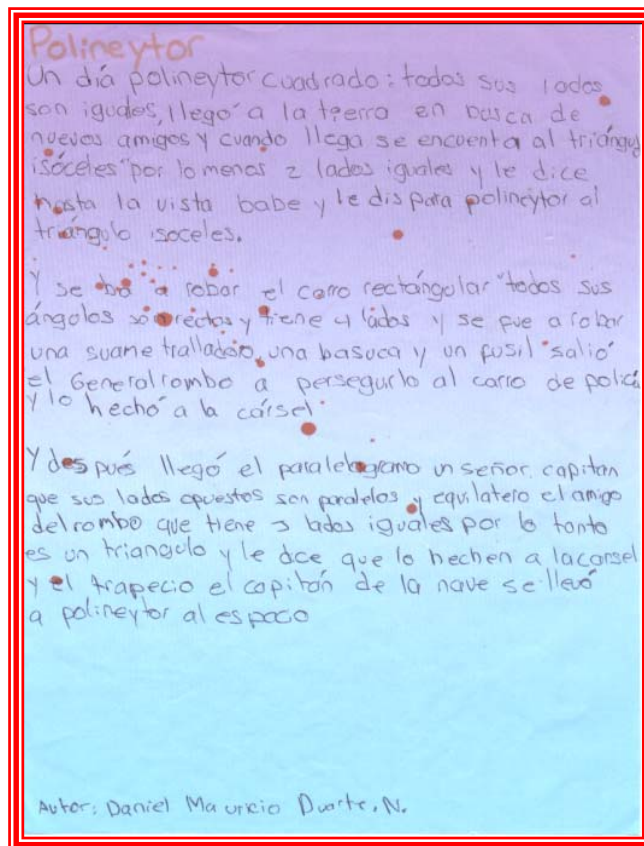 Polineytor
Un día polineytor cuadrado: todos sus lados
son iguales, llegó a la tierra en busca de
nuevos amigos y cuando llega se encuenta al triángulo
isóceles "por lo menos 2 lados iguales y le dice
hasta la vista babe y le dispara polineytor al
triángulo isoceles.
Y se ba a robar el carro rectángular "todos sus
ángolos son rectos y tiene 4 lados y se fue a robar
una suametralladora, una basuca y un fusil "salió
el General rombo a perseguirlo al carro de policia
y lo hechó a la cársel"
Y después llegó el paralelogramo un señor capitan
que sus lados opuestos son paralelos y equilatero el amigo
del rombo que tiene 3 lados iguales por lo tanto
es un triangulo y le dce que lo hechen a la carsel
y el trapecio el capitán de la nave se llevó
a polineytor al espacio
Autor: Daniel Mauricio Duarte. N.